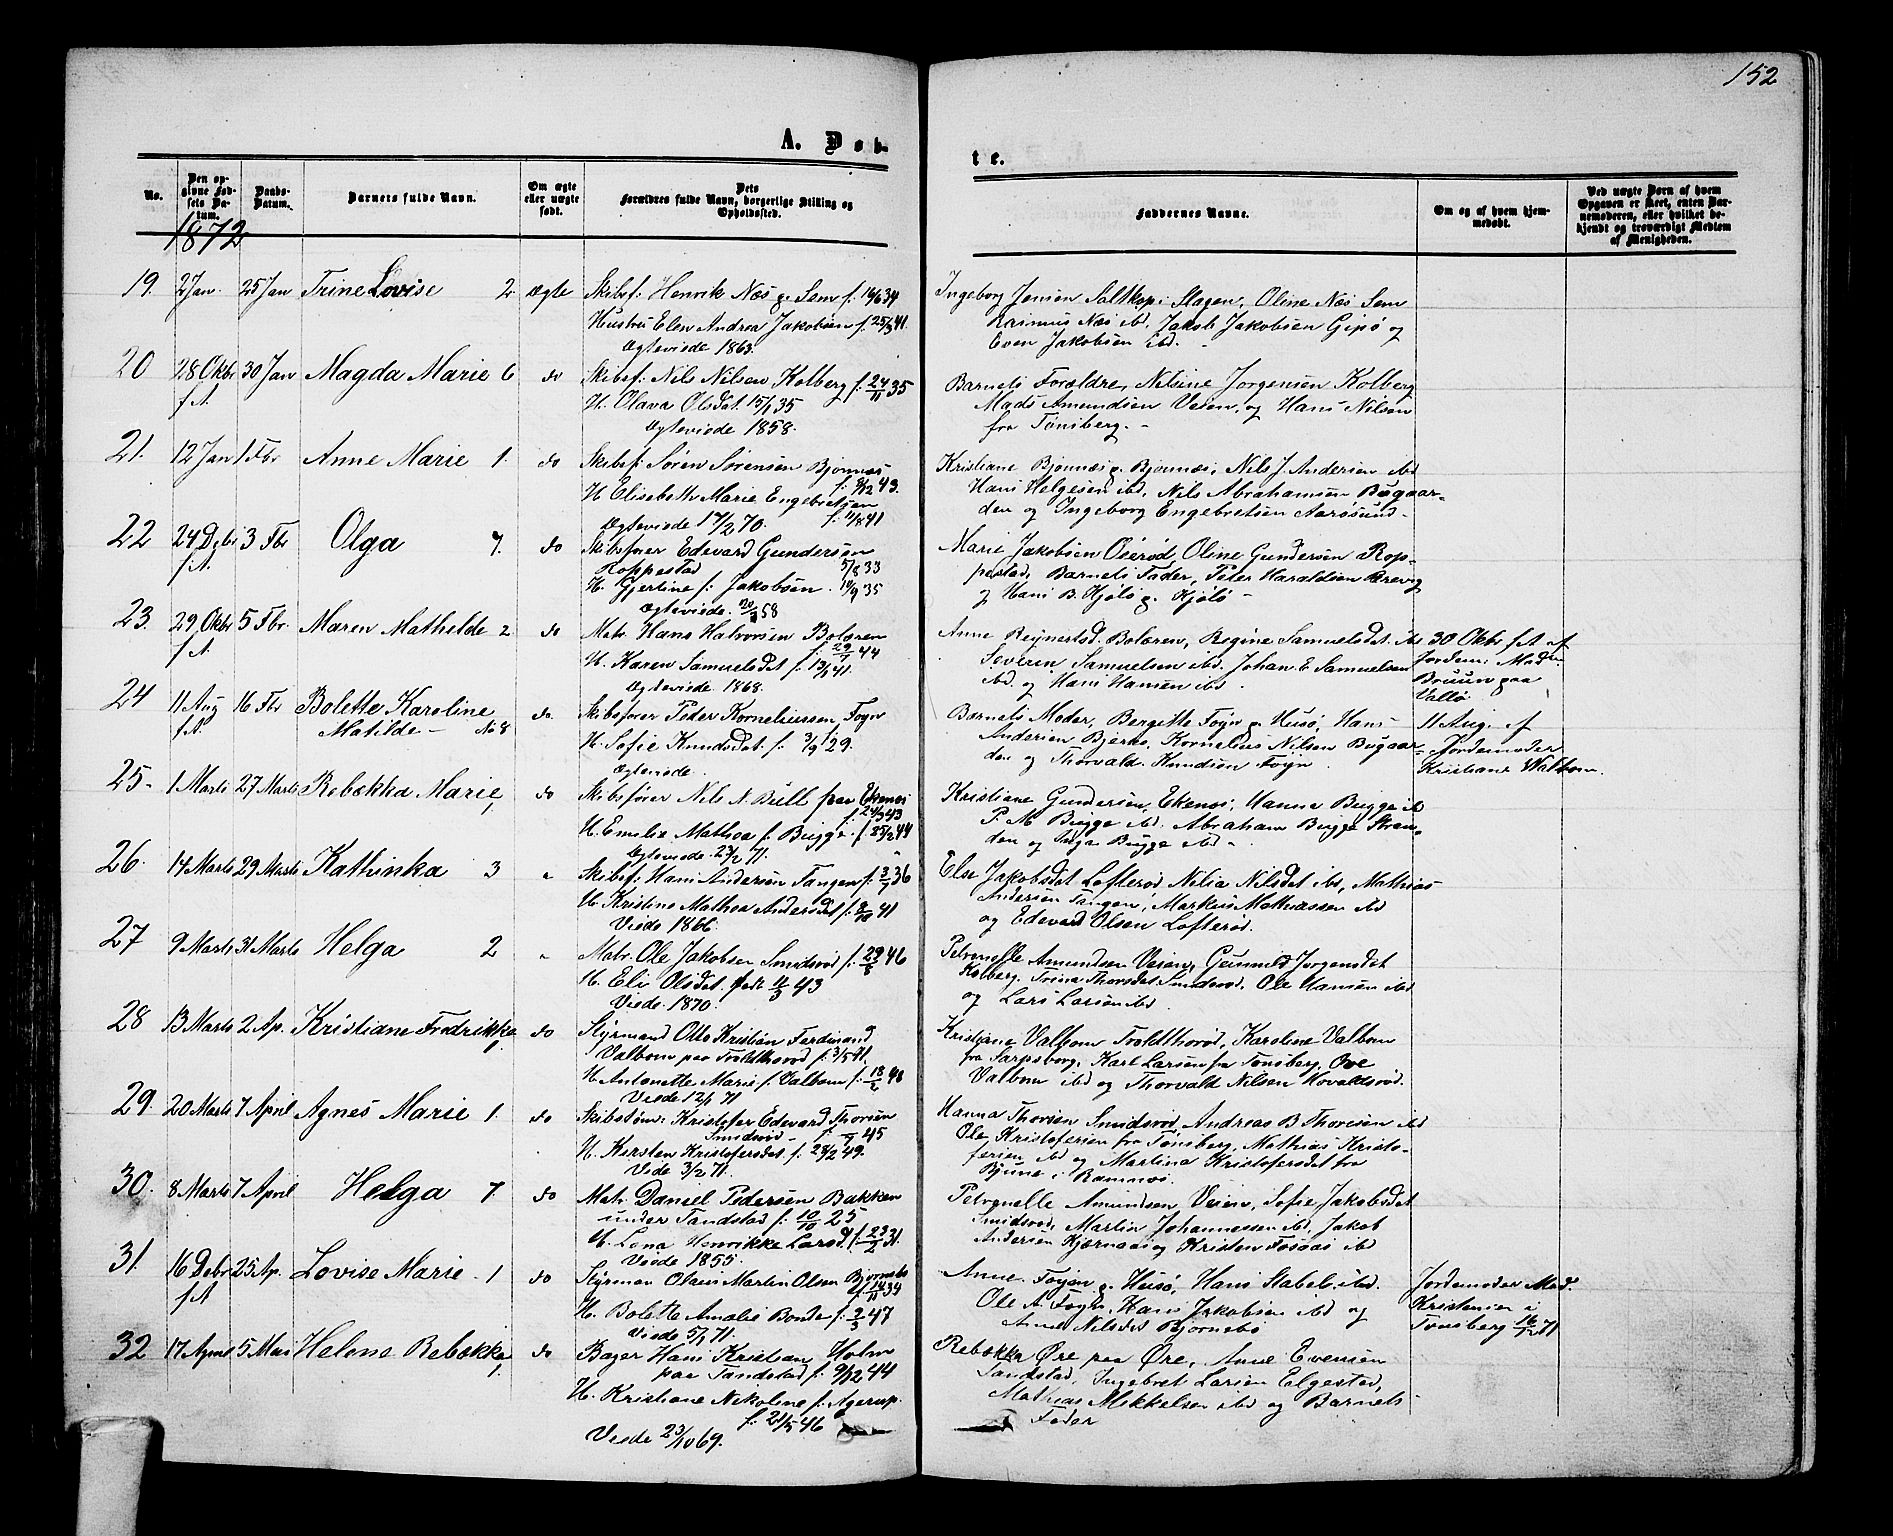 152
A. Døb-
te.
No.
Den opgivne Fødsels Datum.
Daabs-Datum.
Barnets fulde Navn.
Om ægte eller uægte født.
Dets Forældres fulde Navn, borgerlige Stilling og Opholdssted.
Faddernes Navne.
Om og af hvem hjemmedøbt.
Ved uægte Børn af hvem Opgaven er skeet, enten Barnemoderen, eller hvilket bekjendt og troværdigt Medlem af Menigheden.
1872
19. 2 Jan. 25 Jan Trine Lovise 2 ægte Skibsf: Henrik Næs p. Sem f. 16/6 34
Hustru Elen Andrea Jakobsen f. 25/3 41.
Ægteviede 1863.
Ingeborg Jensen Saltkop i Slagen, Oline Næs Sem
Rasmus Næs ibd. Jakob Jakobsen Gipø og
Even Jakobsen ibd.
20 28 Okbr 30 Jan Magda Marie 6 do Skibsf: Nils Nilsen Kolberg f. 24/11 35
f.A. H. Olava Olsdat. 15/1 35
Ægteviede 1858.
Barnets Forældre, Nilsine Jørgensen Kolberg
Mads Amundsen Veien, og Hans Nilsen
fra Tønsberg.
21. 12 Jan 1 Fbr Anne Marie 1. do Skibsf: Søren Sørensen Bjønnes
f. 43.
H. Elisabeth Marie Engebretsen
Ægteviede 17/2 70. f. 11/8 41
Kristiane Bjønnes p. Bjønnes, Nils J. Andersen ibd
Hans Helgesen ibd, Nils Abrahamsen Bugaar-
den og Ingeborg Engebretsen Aarøsund
22 24 Dcbr 3 Fbr Olga 7. do Skibsfører Edevard Gundersen
f.A. Roppestad 5/8 33
H. Gjertine f. Jakobsen. 35
Ægteviede. 58
Marie Jakobsen Oserød, Oline Gundersen Rop-
pestad, Barnets Fader, Peter Haraldsen Brevig
og Hans B. Kjølø p. Kjølø
23. 29 Okbr 5 Fbr. Maren Mathilde 2 do Matr. Hans Halvorsen Bolæren
f.A. f. 29/7 44
H. Karen Samuelsdat f. 13/1 41.
Ægteviede 1868.
Anne Reinertsd. Bolæren, Regine Samuelsdat. ibd
Severin Samuelsen ibd. Johan E Samuelsen
ibd. og Hans Hansen ibd.
30 Okbr f.A. af
Jordem: Mad.
Bruun paa
Vallø
24 11 Aug 16 Fbr Bolette Karoline do. Skibsfører Peder Korneliussen Fogn
f.A. Matilde No 8 H. Sofie Knudsdat. f. 3/9 29.
Ægteviede
Barnets Moder, Bergette Fogn p. Husø, Hans
Andersen Bjerkø, Kornelius Nilsen Bugaar-
den og Thorvald Knudsen Fogn.
11 Aug. af
Jordemoder
Kristiane Walbom.
25 1 Marts 27 Marts Rebekka Marie 1 do Skibsfører Nils N. Bull paa Ekenes
f. 43
H. Emelie Mathea f. Bugge f 25/2 44
Ægteviede. 71.
Kristiane Gundersen, Ekenes, Hanna Bugge ibd
P. M Bugge ibd. Abraham Bugge Stran-
den og Inga Bugge ibd
26. 14 Marts 29 Marts Kathinka 3 " Skibsf: Hans Andersen Tangen f. 36
H. Kristine Mathea Andersdat f. 41
Viede 1866.
Else Jakobsdat Lofterød Nilia Nilsdat ibd, Mathias
Andersen Tangen, Markus Mathiassen ibd
og Edevard Olsen Lofterød.
27 9 Marts 31 Marts Helga 2 " Matr. Ole Jakobsen Smidsrød f. 46
H. Eli Olsdat. født 11/3 43
Viede. 1870.
Petronelle Amundsen Veien, Gunnild Jørgensdat
Kolberg, Trina Thorsdat Smidsrød, Ole Hansen ibd
og Lars Larsen ibd
28 13 Marts 2 Ap. Kristiane Fredrikke 1. do Styrmand Otto Kristian Ferdinand
Valbom paa Troldthorød f. 3/5 41.
H. Antonette Marie f. Valbom f: 18/2 48
Viede 71
Kristiane Valbom Troldthorød, Karoline Valbom
fra Sarpsborg, Karl Larsen fra Tønsberg, Ove
Valbom ibd og Thorvald Nilsen Hovaldsrød.
29. 20 Marts 7 April Agnes Marie 1. do Skibstøm: Kristofer Edevard Thorsen
Smidsrød f. 45
H. Kersten Kristofersdat f. 49.
Viede 3/2 71.
Hanna Thorsen Smidsrød, Andreas B Thoresen ibd
Ole Kristofersen fra Tønsberg, Mathias Kristo-
fersen ibd og Martina Kristofersdat fra
Bjune i Ramnes.
30. 8 Marts 7 April Helga 7. do Matr. Daniel Pedersen Bakken
under Tandstad f. 10/10 25
H. Lena Henrikke Larsd. f. 23/2 31.
Viede 1855.
Petronelle Amundsen, Veien, Sofie Jakobsdat
Smidsrød, Martin Johannessen ibd, Jakob
Andersen Kjærnaas og Kristen Fosaas ibd
31. 16 Debr 25 Ap. Lovise Marie 1 do Styrman Olaus Martin Olsen Bjørnebo
f.A f. 34
H. Bolette Amalie Bonde f. 2/3 47
Viede 5/1 71.
Anne Føyen p. Husø, Hans Stabel. ibd.
Ole A Fogn, Hans Jakobsen ibd og
Anne Nilsdat Bjørnebo
Jordemoder Mad.
Kristensen i
Tønsberg 71
32 17 April 5 Mai Helene Rebekka 1. do Bager Hans Kristian Holm
paa Tandstad f. 9/12 44
H. Kristiane Nikoline f. Agerup.
f. 21/5 46
Viede 23/10 69.
Rebekka Øre paa Øre, Anne Evensen
Tandstad, Ingebret Larsen Elgestad,
Mathias Mikkelsen ibd og Barnets
Fader